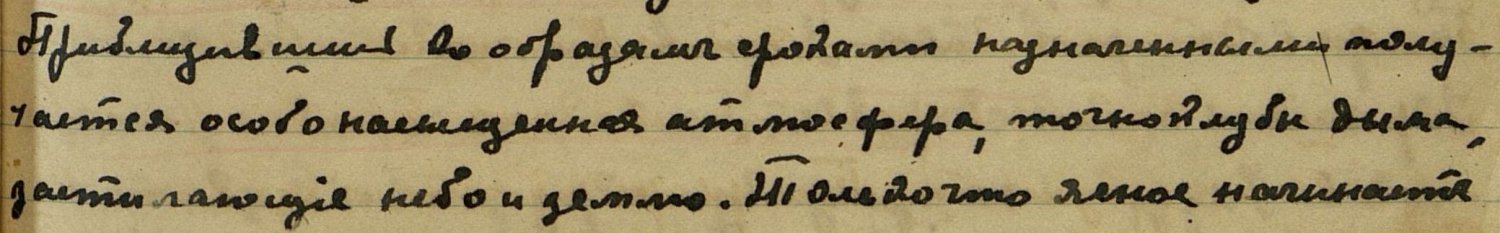 Приблизивший во образамъ сроками назначенными полу-
чается особо насыщенная атмосфера, точно клубы дыма,
застилающіе небо и землю. Только что ясное начинаетъ